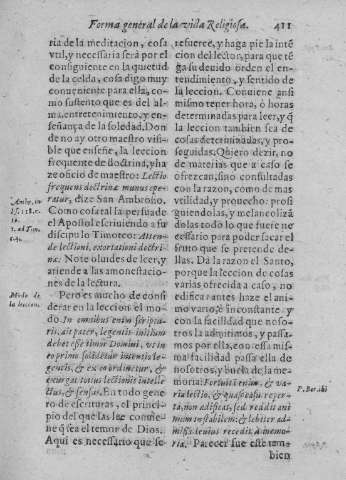 Forma general de la vida Religiosa. 411
ria de la meditacion, cosa
vtil, y necessaria será por el
consiguiente en la quietud
de la celda, cosa digo muy
conueniente para ella, co-
mo sustento que es del al-
ma, entretenimiento, y en-
señança de la soledad. Don
de no ay otro maestro visi-
ble que enseñe, la leccion
frequente de doctrina, y ha
ze oficio de maestro: Lectio
frequens doctrinæ munus ope-
ratur, dize San Ambrosio.
Como cosa tal la persuade
el Apostol escriuiendo a su
discipulo Timoteo: Atten-
de lectioni, exortationi doctri-
næ. No te oluides de leer, y
atiende a las amonestacio-
nes de la letura.
Pero es mucho de consi
derar en la leccion el mo-
do. In omnibus enim scriptu-
ris, ait pater, legentis initium
debet esse timor Domini, vt in
eo primo solidetur intentio le-
gentis, & ex eo ordinetur, &
exurgat totus lectionis intelle
ctus, & sensus. En todo gene-
ro de escrituras, el princi-
pio del que las lee conuie-
ne q̃ sea el temor de Dios.
Aqui es necessario que se
Ambr. in
ps. 118.
1. ad Tim.
Modo de
la leccion.
refuerce, y haga pie la intẽ
cion del lector, para que tẽ
ga su deuido orden el en-
tendimiento, y sentido de
la leccion. Conuiene ansi
mismo tener hora, ò horas
determinadas para leer, y q̃
la leccion tambien sea de
cosas determinadas, y pro-
seguidas. Quiero dezir, no
de materias que a caso se
ofrezcan, sino consultadas
con la razon, como de mas
vtilidad, y prouecho: prosi
guiendolas, y
dolas todo lo que fuere ne
cessario para poder sacar el
fruto que se pretende de-
llas. Da la razon el Santo,
porque la leccion de cosas
varias ofrecida a caso, no
edifica: antes haze el ani-
mo vario, è inconstante: y
con la facilidad que noso-
tros la admitimos, y passa-
mos por ella, con essa mis
ma facilidad passa ella de
nosotros, y buela de la me-
moria: Fortuita enim, & va-
ria lectio, & quasi casu reper-
ta, non ædificat, sed reddit ani
mum instabilem: & leuiter ad-
missa leuius recedit à memo-
ria. Parecer fue este tam-
bien
P. Ber. ibi